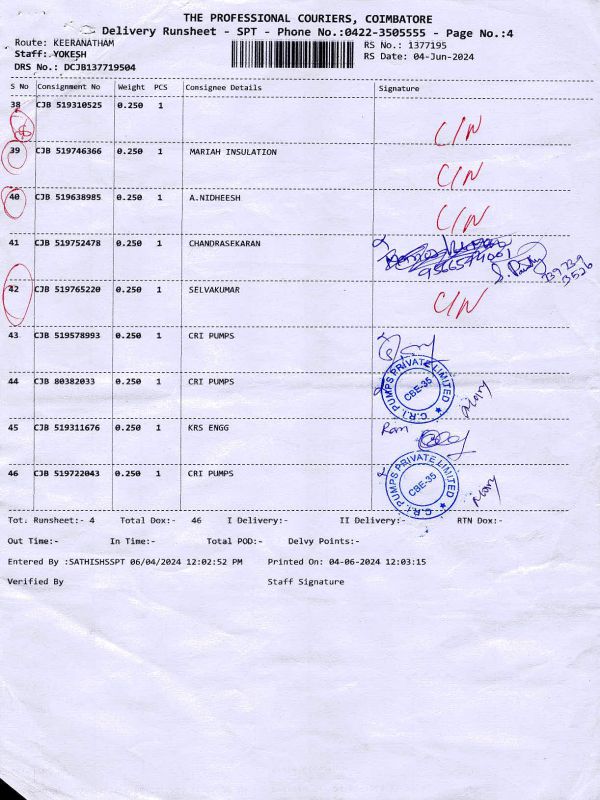 THE PROFESSIONAL COURIERS, COIMBATORE
Delivery Runsheet - SPT - Phone No.:0422-3505555 - Page No.:4
Route: KEERANATHAM RS No.: 1377195
Staff: YOKESH RS Date: 04-Jun-2024
DRS No.: DCJB137719504
S No Consignment No Weight PCS Consignee Details Signature
38 CJB 519310525 0.250 1
C/N
39 CJB 519746366 0.250 1 MARIAH INSULATION
C/N
40 CJB 519638985 0.250 1 A.NIDHEESH
C/N
41 CJB 519752478 0.250 1 CHANDRASEKARAN
9566574001
42 CJB 519765220 0.250 1 SELVAKUMAR C/N
43 CJB 519578993 0.250 1 CRI PUMPS
44 CJB 80382033 0.250 1 CRI PUMPS
C.R.I. PUMPS PRIVATE LIMITED
CBE-35
45 CJB 519311676 0.250 1 KRS ENGG Ram
46 CJB 519722043 0.250 1 CRI PUMPS
C.R.I. PUMPS PRIVATE LIMITED
CBE-35
Tot. Runsheet:- 4 Total Dox:- 46 I Delivery:- II Delivery:- RTN Dox:-
Out Time:- In Time:- Total POD:- Delvy Points:-
Entered By :SATHISHSSPT 06/04/2024 12:02:52 PM Printed On: 04-06-2024 12:03:15
Verified By Staff Signature